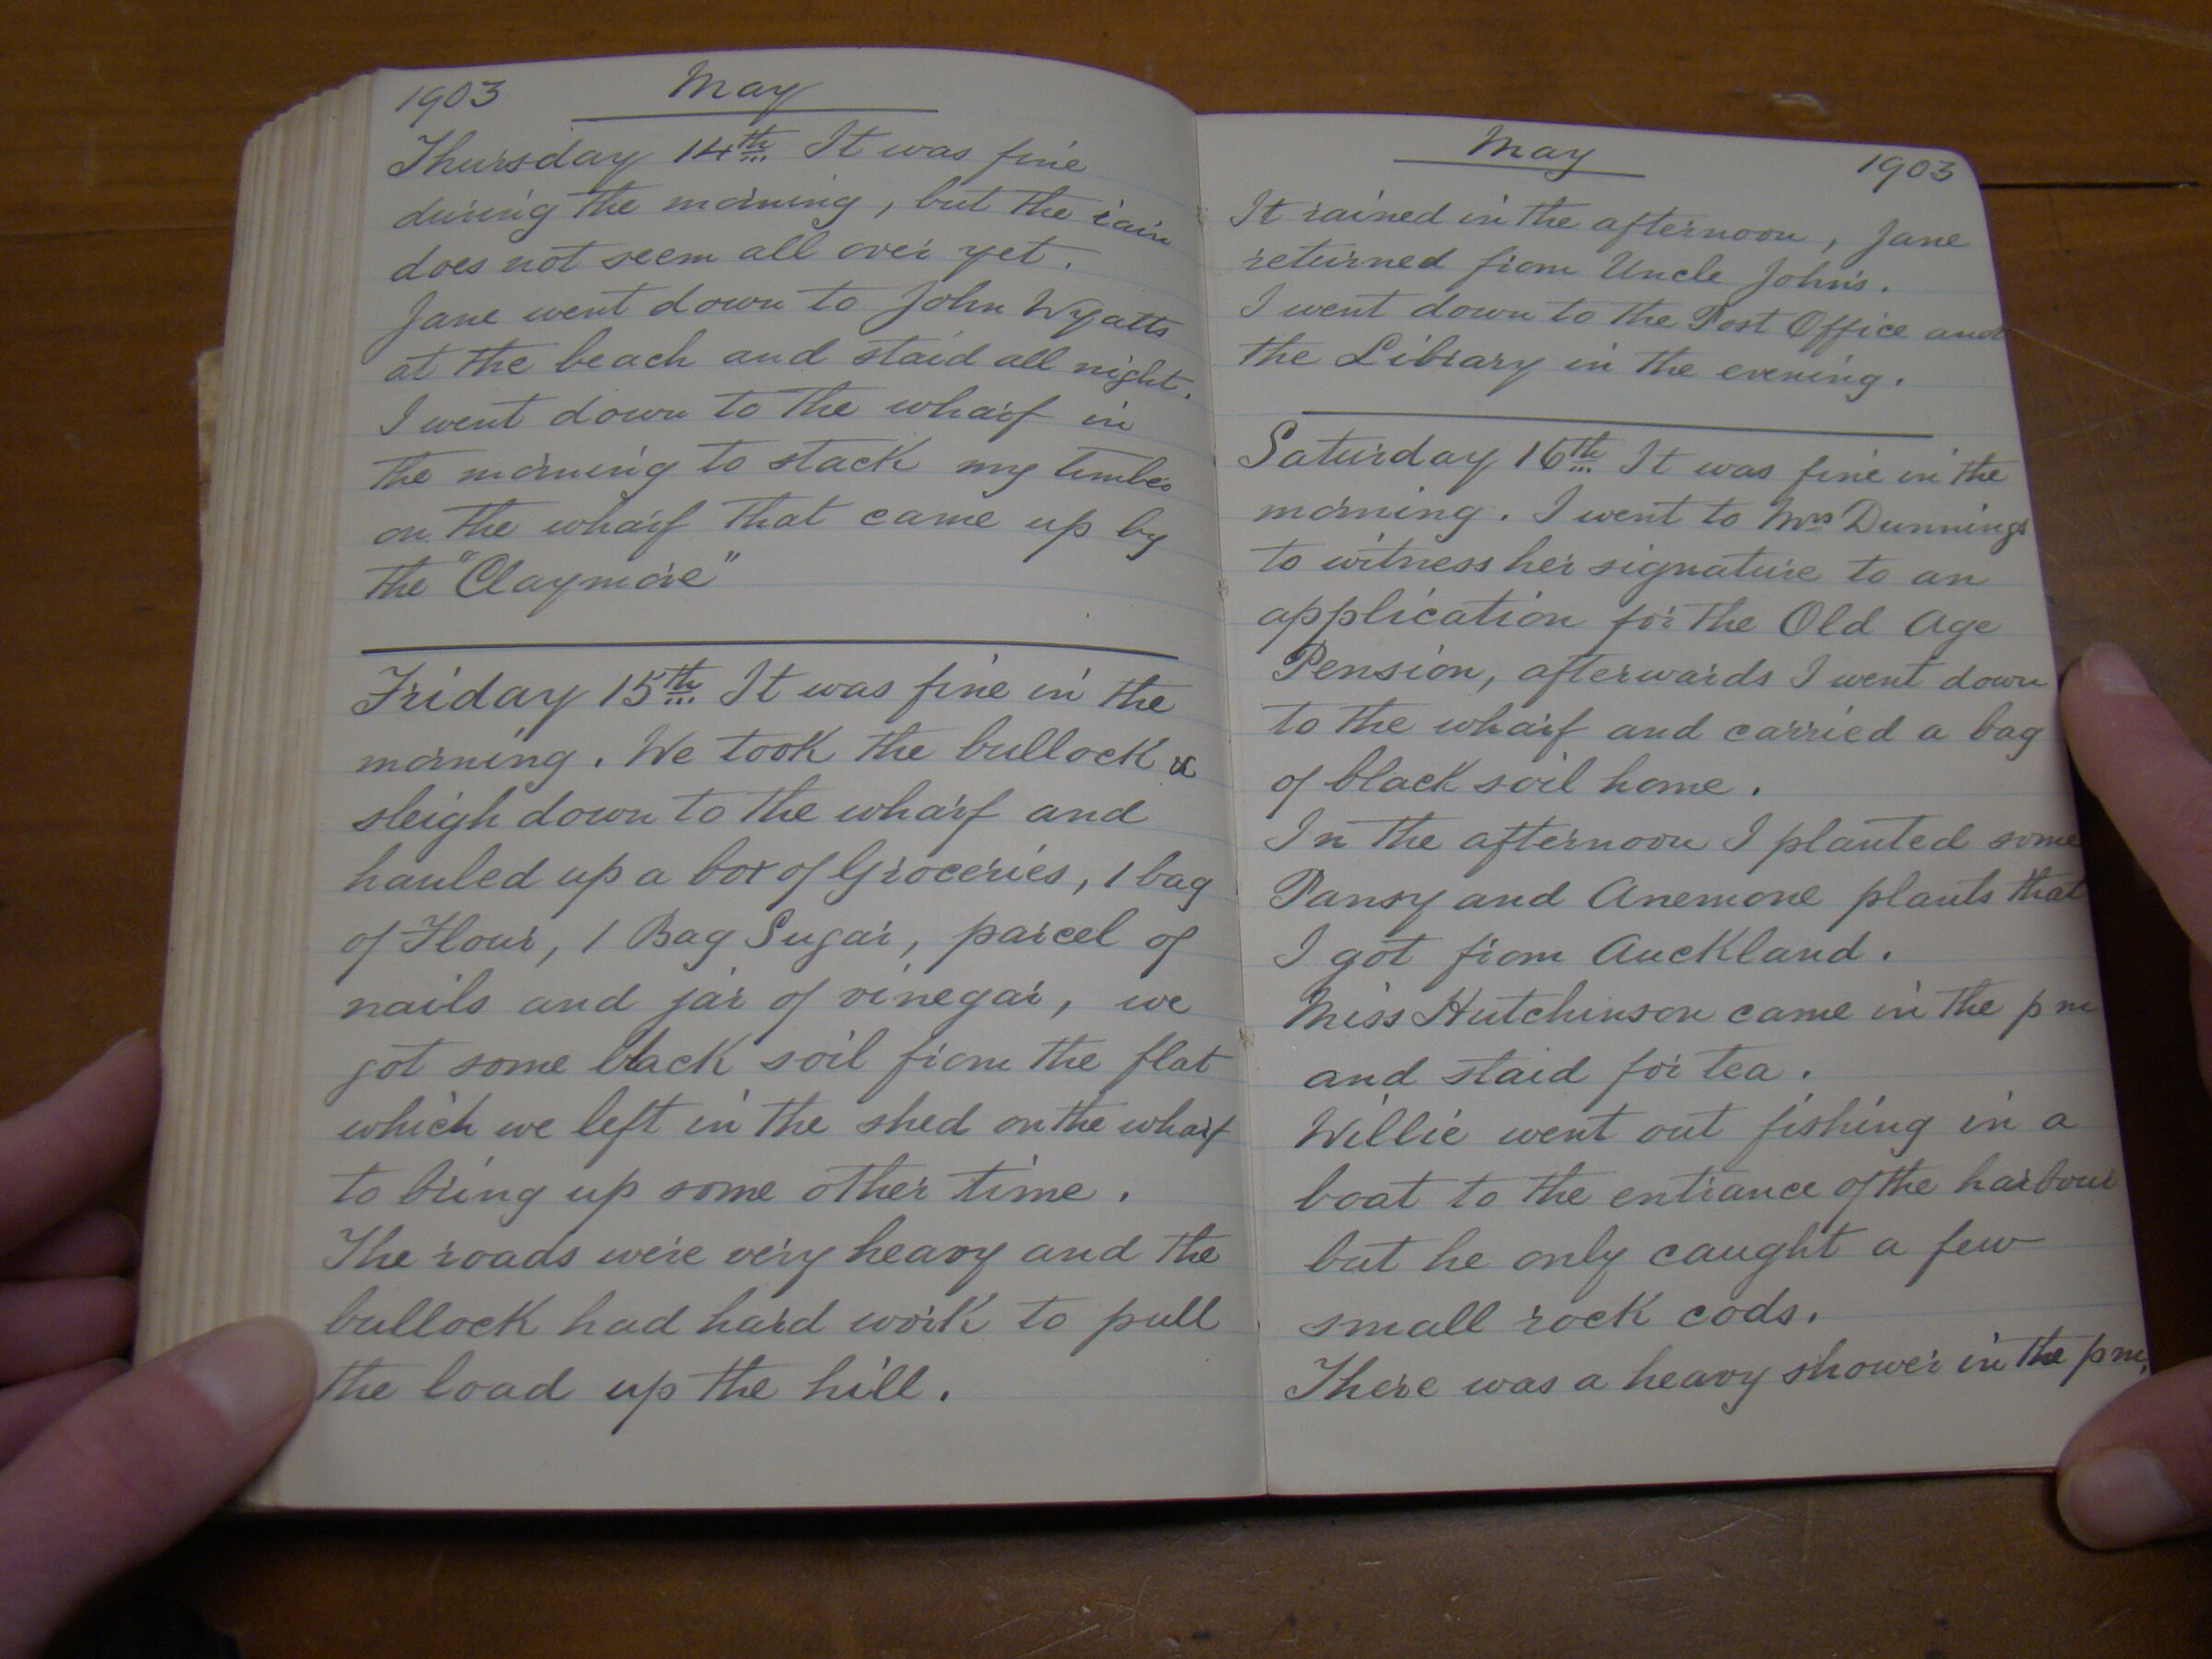 1903 May
Thursday 14th It was fine
during the morning, but the rain
does not seem all over yet.
Jane went down to John Wyatts
at the beach and staid all night.
I went down to the wharf in
the morning to stack my timber
on the wharf that came up by
the "Claymore"
Friday 15th It was fine in the
morning. We took the bullock &
sleigh down to the wharf and
hauled up a box of Groceries, 1 bag
of Flour, 1 Bag Sugar, parcel of
nails and jar of vinegar, we
got some black soil from the flat
which we left in the shed on the wharf
to bring up some other time.
The roads were very heavy and the
bullock had hard work to pull
the load up the hill.
May 1903
It rained in the afternoon, Jane
returned from Uncle John's.
I went down to the Post Office and
the Library in the evening.
Saturday 16th It was fine in the
morning. I went to Mrs Dunnings
to witness her signature to an
application for the Old Age
Pension, afterwards I went down
to the wharf and carried a bag
of black soil home.
In the afternoon I planted some
Pansy and Anemone plants that
I got from Auckland.
Miss Hutchinson came in the pm
and staid for tea.
Willie went out fishing in a
boat to the entrance of the harbour
but he only caught a few
small rock cods.
There was a heavy shower in the pm.